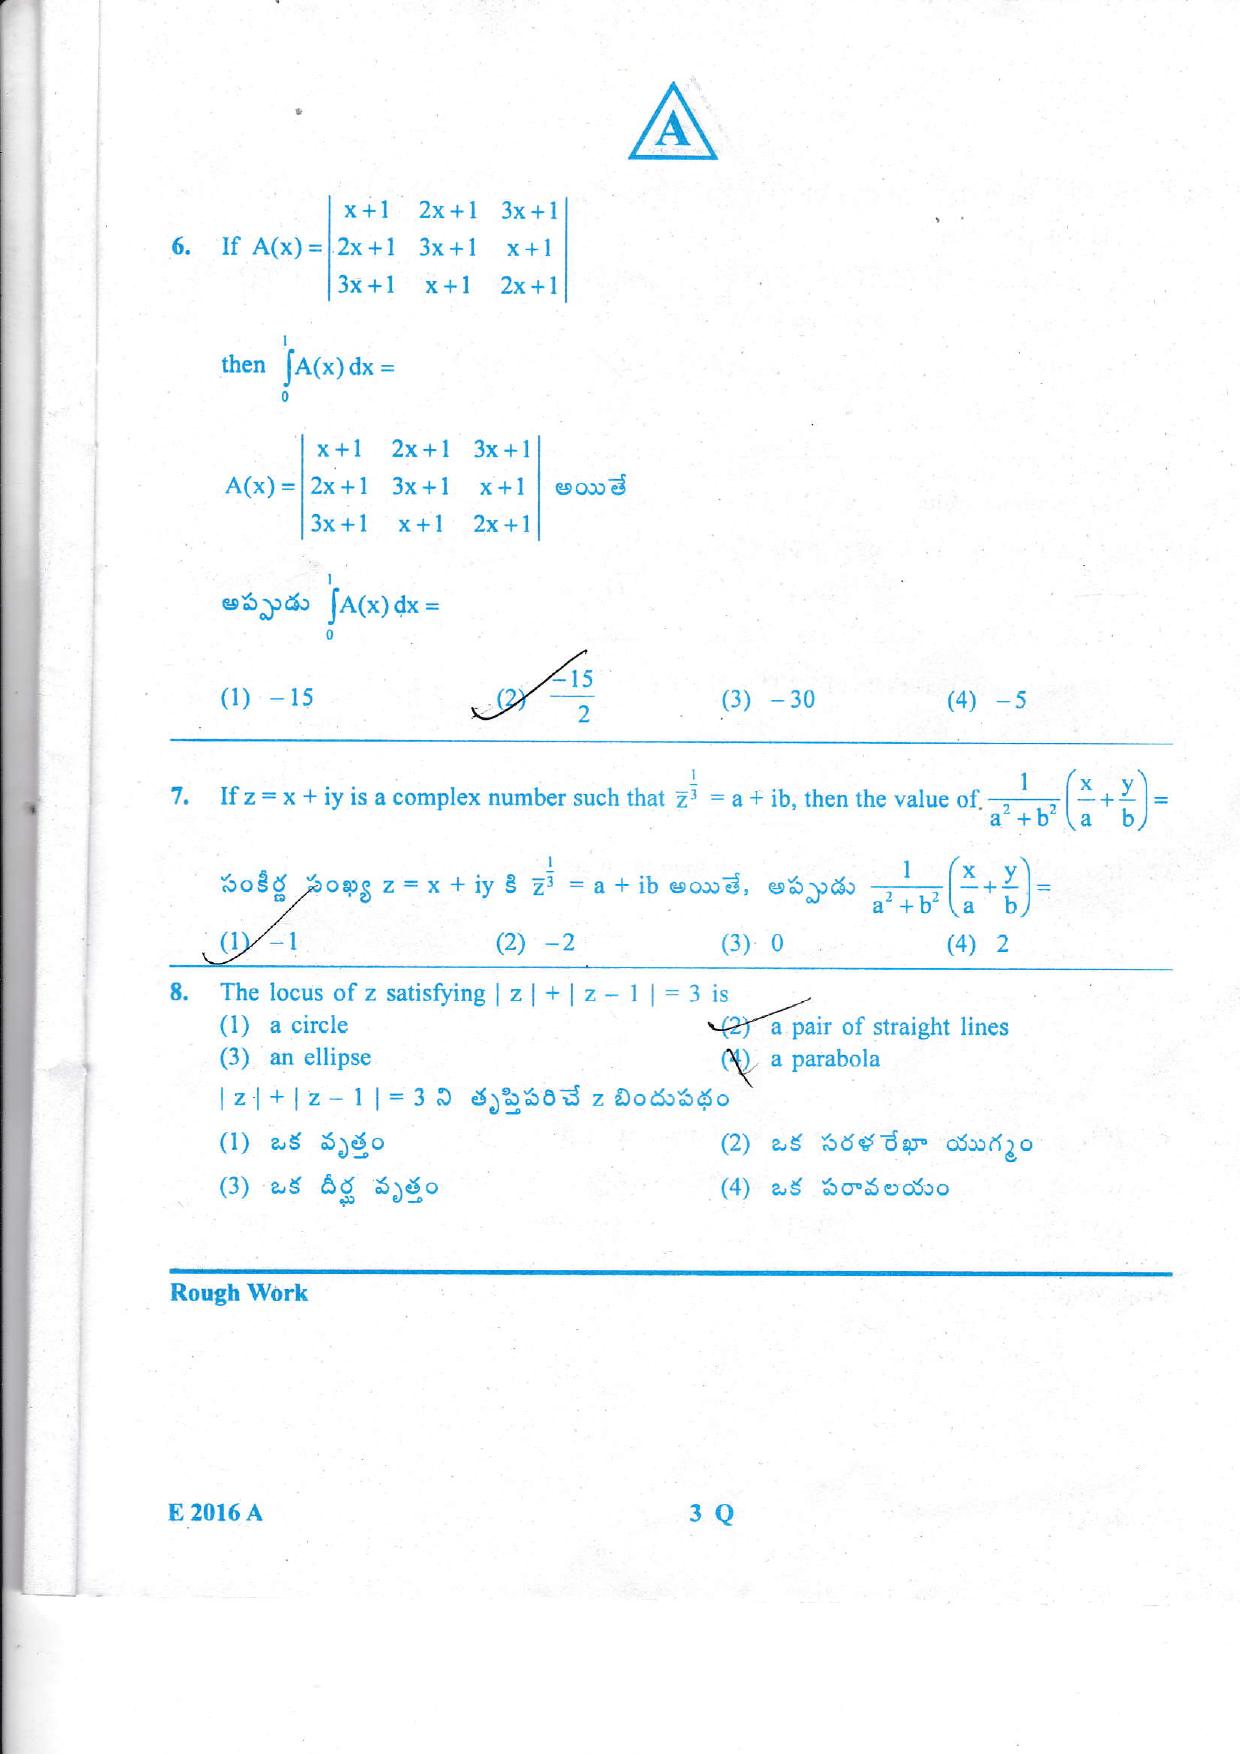 A
6. If A(x) = | x+1 2x+1 3x+1 |
| 2x+1 3x+1 x+1 |
| 3x+1 x+1 2x+1 |
then ∫₀¹ A(x) dx =
A(x) = | x+1 2x+1 3x+1 |
| 2x+1 3x+1 x+1 | అయితే
| 3x+1 x+1 2x+1 |
అప్పుడు ∫₀¹ A(x) dx =
(1) −15 (2) −15/2 (3) −30 (4) −5
7. If z = x + iy is a complex number such that z̅^(1/3) = a + ib, then the value of 1/(a²+b²) (x/a + y/b) =
సంకీర్ణ సంఖ్య z = x + iy కి z̅^(1/3) = a + ib అయితే, అప్పుడు 1/(a²+b²) (x/a + y/b) =
(1) −1 (2) −2 (3) 0 (4) 2
8. The locus of z satisfying | z | + | z − 1 | = 3 is
(1) a circle (2) a pair of straight lines
(3) an ellipse (4) a parabola
| z | + | z − 1 | = 3 ని తృప్తిపరిచే z బిందుపథం
(1) ఒక వృత్తం (2) ఒక సరళరేఖా యుగ్మం
(3) ఒక దీర్ఘ వృత్తం (4) ఒక పరావలయం
Rough Work
E 2016 A 3 Q